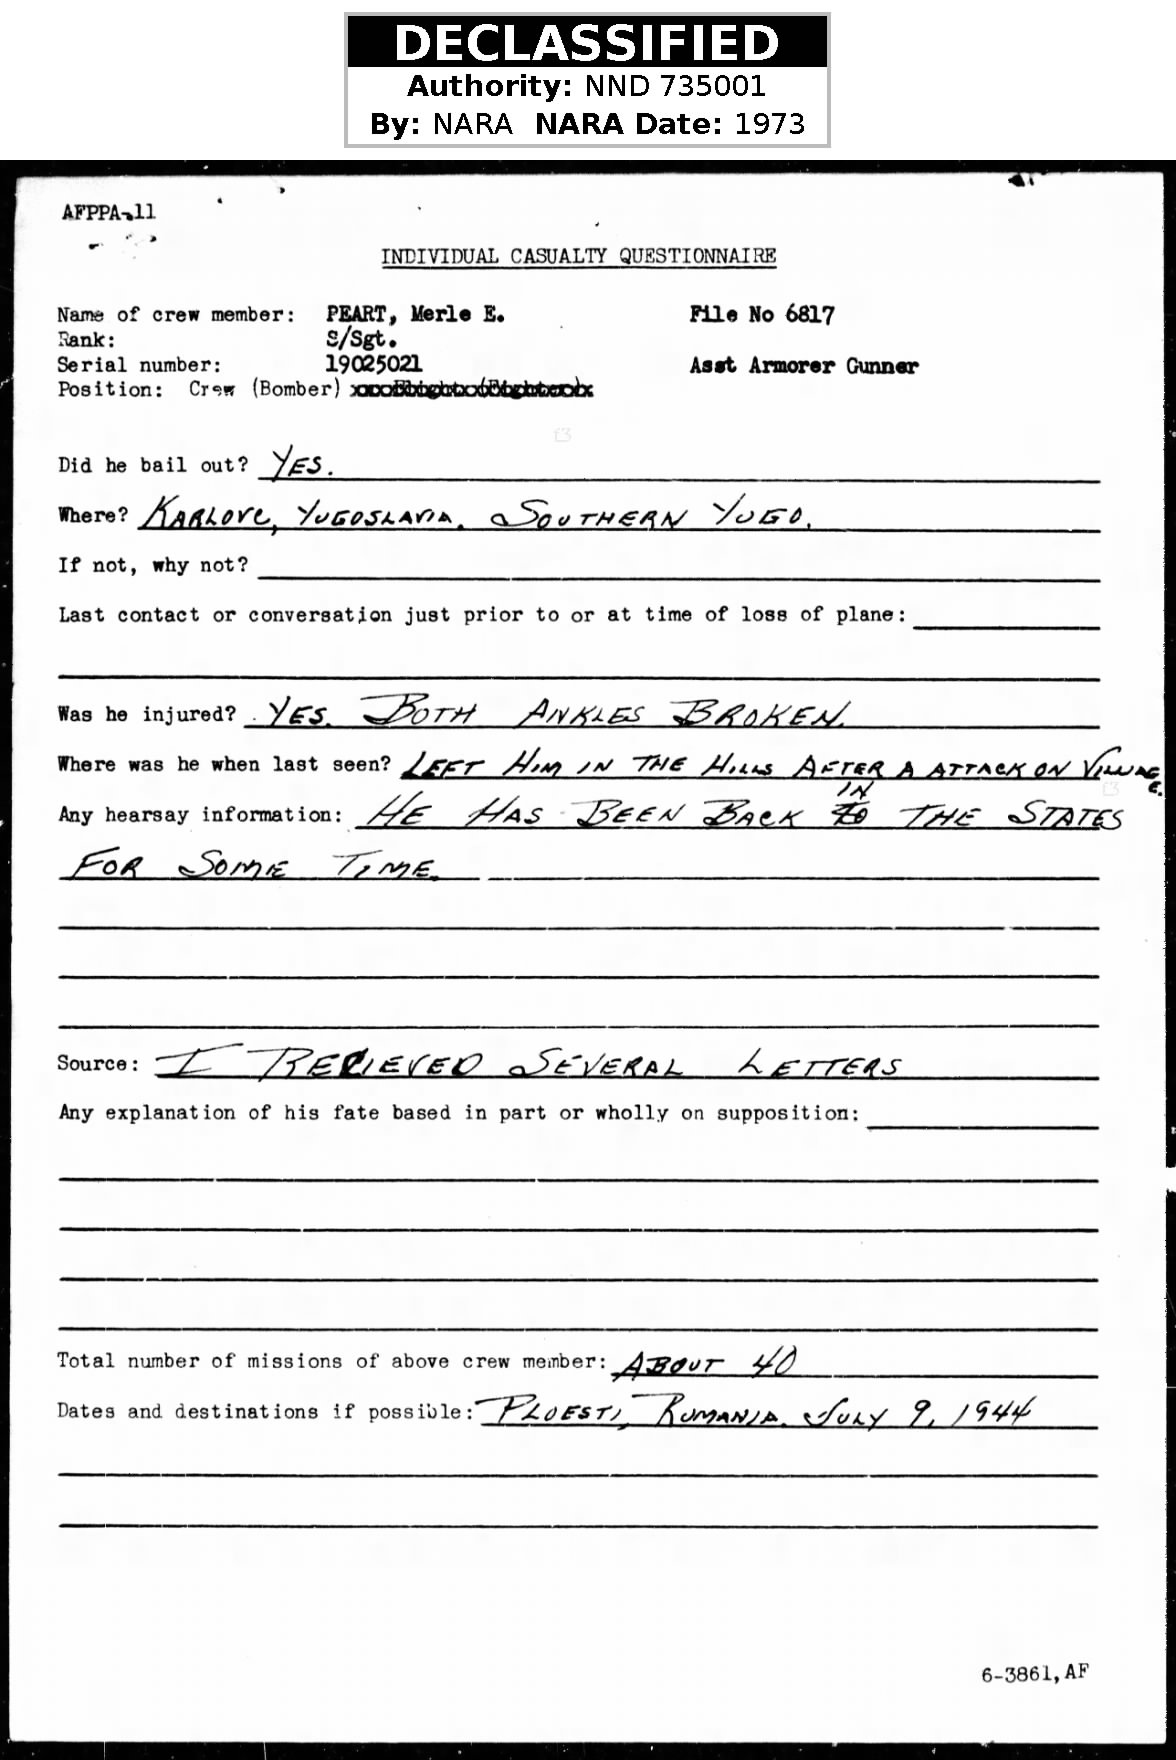 DECLASSIFIED
Authority: NND 735001
By: NARA NARA Date: 1973
AFPPA-11
INDIVIDUAL CASUALTY QUESTIONNAIRE
Name of crew member: PEART, Merle E. File No 6817
Rank: S/Sgt.
Serial number: 19025021 Asst Armorer Gunner
Position: Crew (Bomber)
Did he bail out? YES.
Where? KARLOVC, YUGOSLAVIA. SOUTHERN YUGO.
If not, why not?
Last contact or conversation just prior to or at time of loss of plane:
Was he injured? YES. BOTH ANKLES BROKEN.
Where was he when last seen? LEFT HIM IN THE HILLS AFTER A ATTACK ON VILLAGE.
Any hearsay information: HE HAS BEEN BACK IN THE STATES
FOR SOME TIME.
Source: I RECIEVED SEVERAL LETTERS
Any explanation of his fate based in part or wholly on supposition:
Total number of missions of above crew member: ABOUT 40
Dates and destinations if possible: PLOESTI, RUMANIA. JULY 9, 1944
6-3861, AF